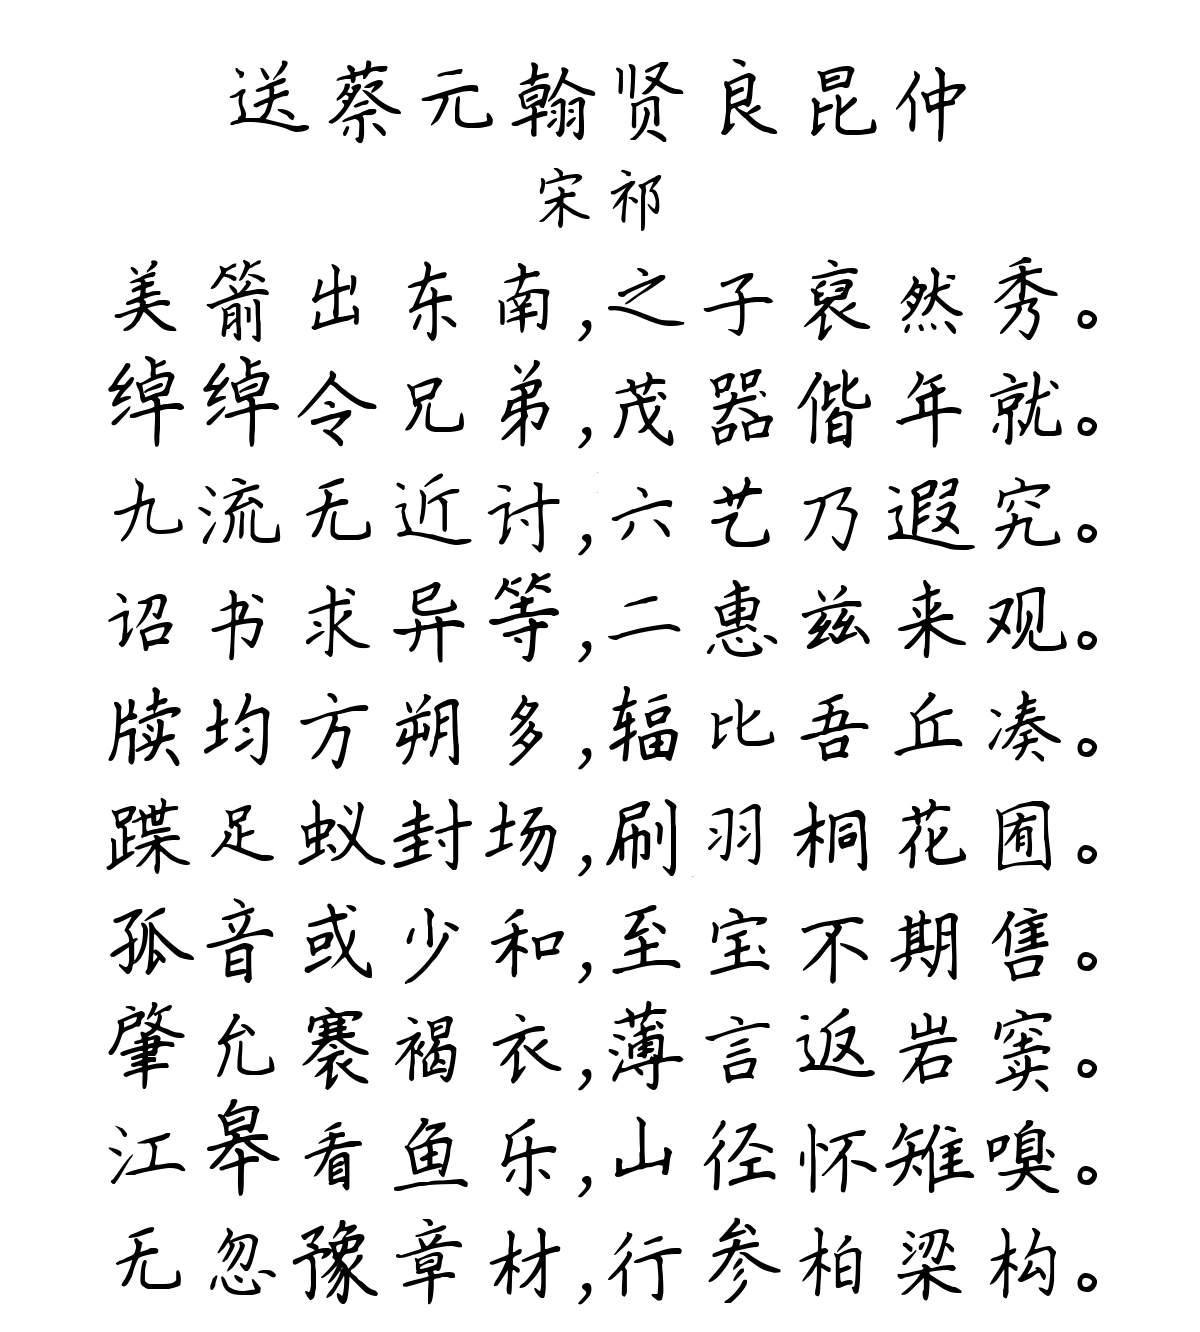 送蔡元翰贤良昆仲
宋祁
美箭出东南,之子裒然秀。
绰绰令兄弟,茂器偕年就。
九流无近讨,六艺乃遐究。
诏书求异等,二惠兹来观。
牍均方朔多,辐比吾丘凑。
蹀足蚁封场,刷羽桐花囿。
孤音或少和,至宝不期售。
肇允褰褐衣,薄言返岩窦。
江皋看鱼乐,山径怀雉嗅。
无忽豫章材,行参柏梁构。